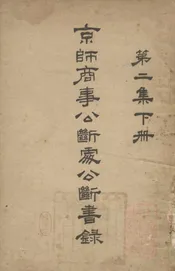 第二集下冊
京師商事公斷處公斷書錄